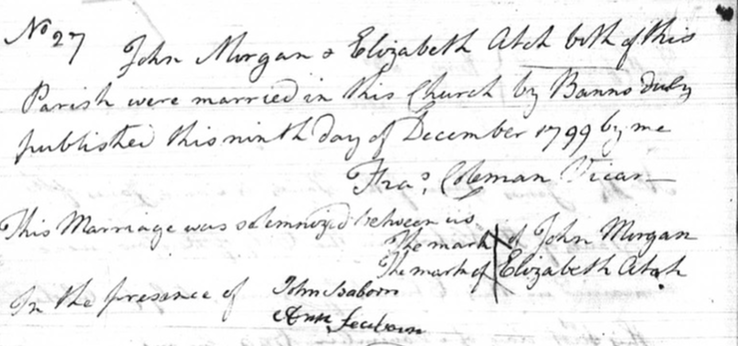 No 27 John Morgan & Elizabeth Atch both of this
Parish were married in this Church by Banns duly
published this ninth day of December 1799 by me
Fras. Coleman Vicar
This Marriage was solemnized between us
The mark X of John Morgan
The mark of X Elizabeth Atch
In the presence of John
Ann